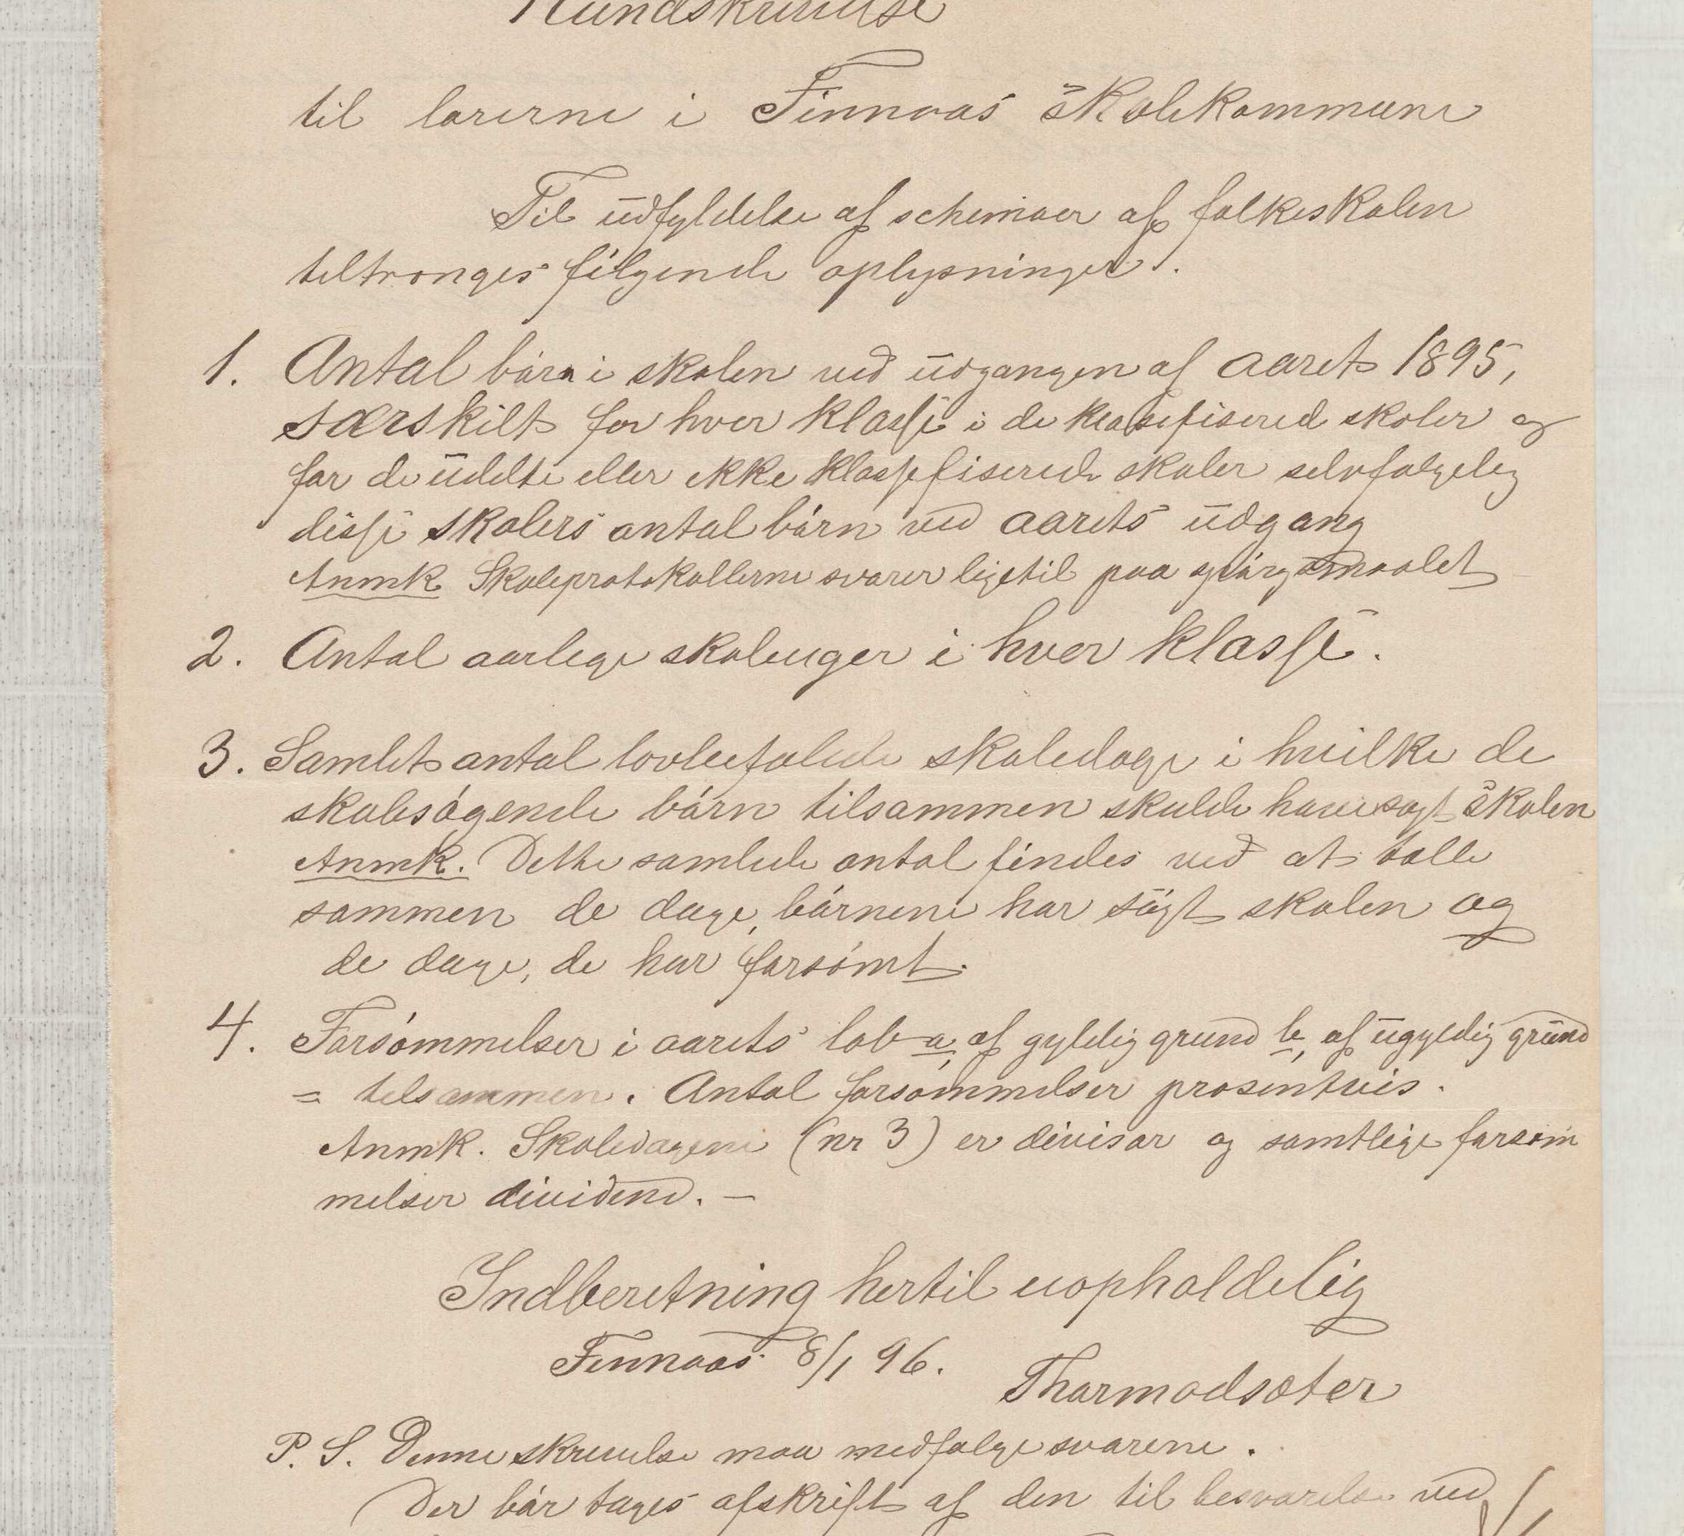 Rundskrivelse
til lærerne i Finnaas skolekommune
Til udfyldelse af schemaer af folkeskolen
tiltrænges følgende oplysninger.
1. Antal börn i skolen ved udgangen af aaret 1895,
særskilt for hver klasse i de klassifiserede skoler og
for de udelte eller ikke klassefiserede skoler selvfølgelig
disse skolers antal börn ved aarets udgang
Anmk. Skoleprotokollerne svarer ligetil paa spörgsmaalet
2. Antal aarlige skoleuger i hver klasse.
3. Samlet antal lovbefalede skoledage i hvilke de
skolesögende börn tilsammen skulde have sögt skolen
Anmk. Dette samlede antal findes ved at tælle
sammen de dage, börnene har sögt skolen og
de dage, de har forsömt.
4. Forsömmelser i aarets løb a, af gyldig grund b, af ugyldig grund
= tilsammen. Antal forsömmelser prosentvis.
Anmk. Skoledagene (nr 3) er divisor og samtlige forsöm
melser dividend. —
Indberetning hertil uopholdelig
Finnaas 8/1 96.
Thormodsæter
P. S. Denne skrivelse maa medfølge svarene.
Der bör tages afskrift af den til besvarelse ved